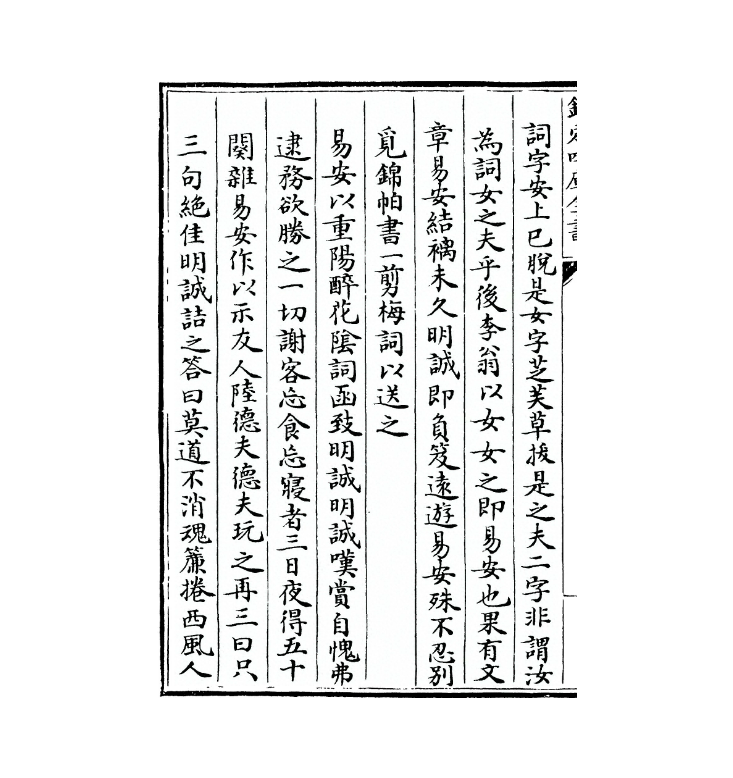 欽定四庫全書
詞字安上已脫是女字芝芙草拔是之夫二字非謂汝
為詞女之夫乎後李翁以女女之即易安也果有文
章易安結褵未久明誠即負笈遠遊易安殊不忍别
覓錦帕書一剪梅詞以送之
易安以重陽醉花隂詞函致明誠明誠嘆賞自愧弗
逮務欲勝之一切謝客忘食忘寢者三日夜得五十
闋雜易安作以示友人陸德夫德夫玩之再三曰只
三句絶佳明誠詰之答曰莫道不消魂簾捲西風人